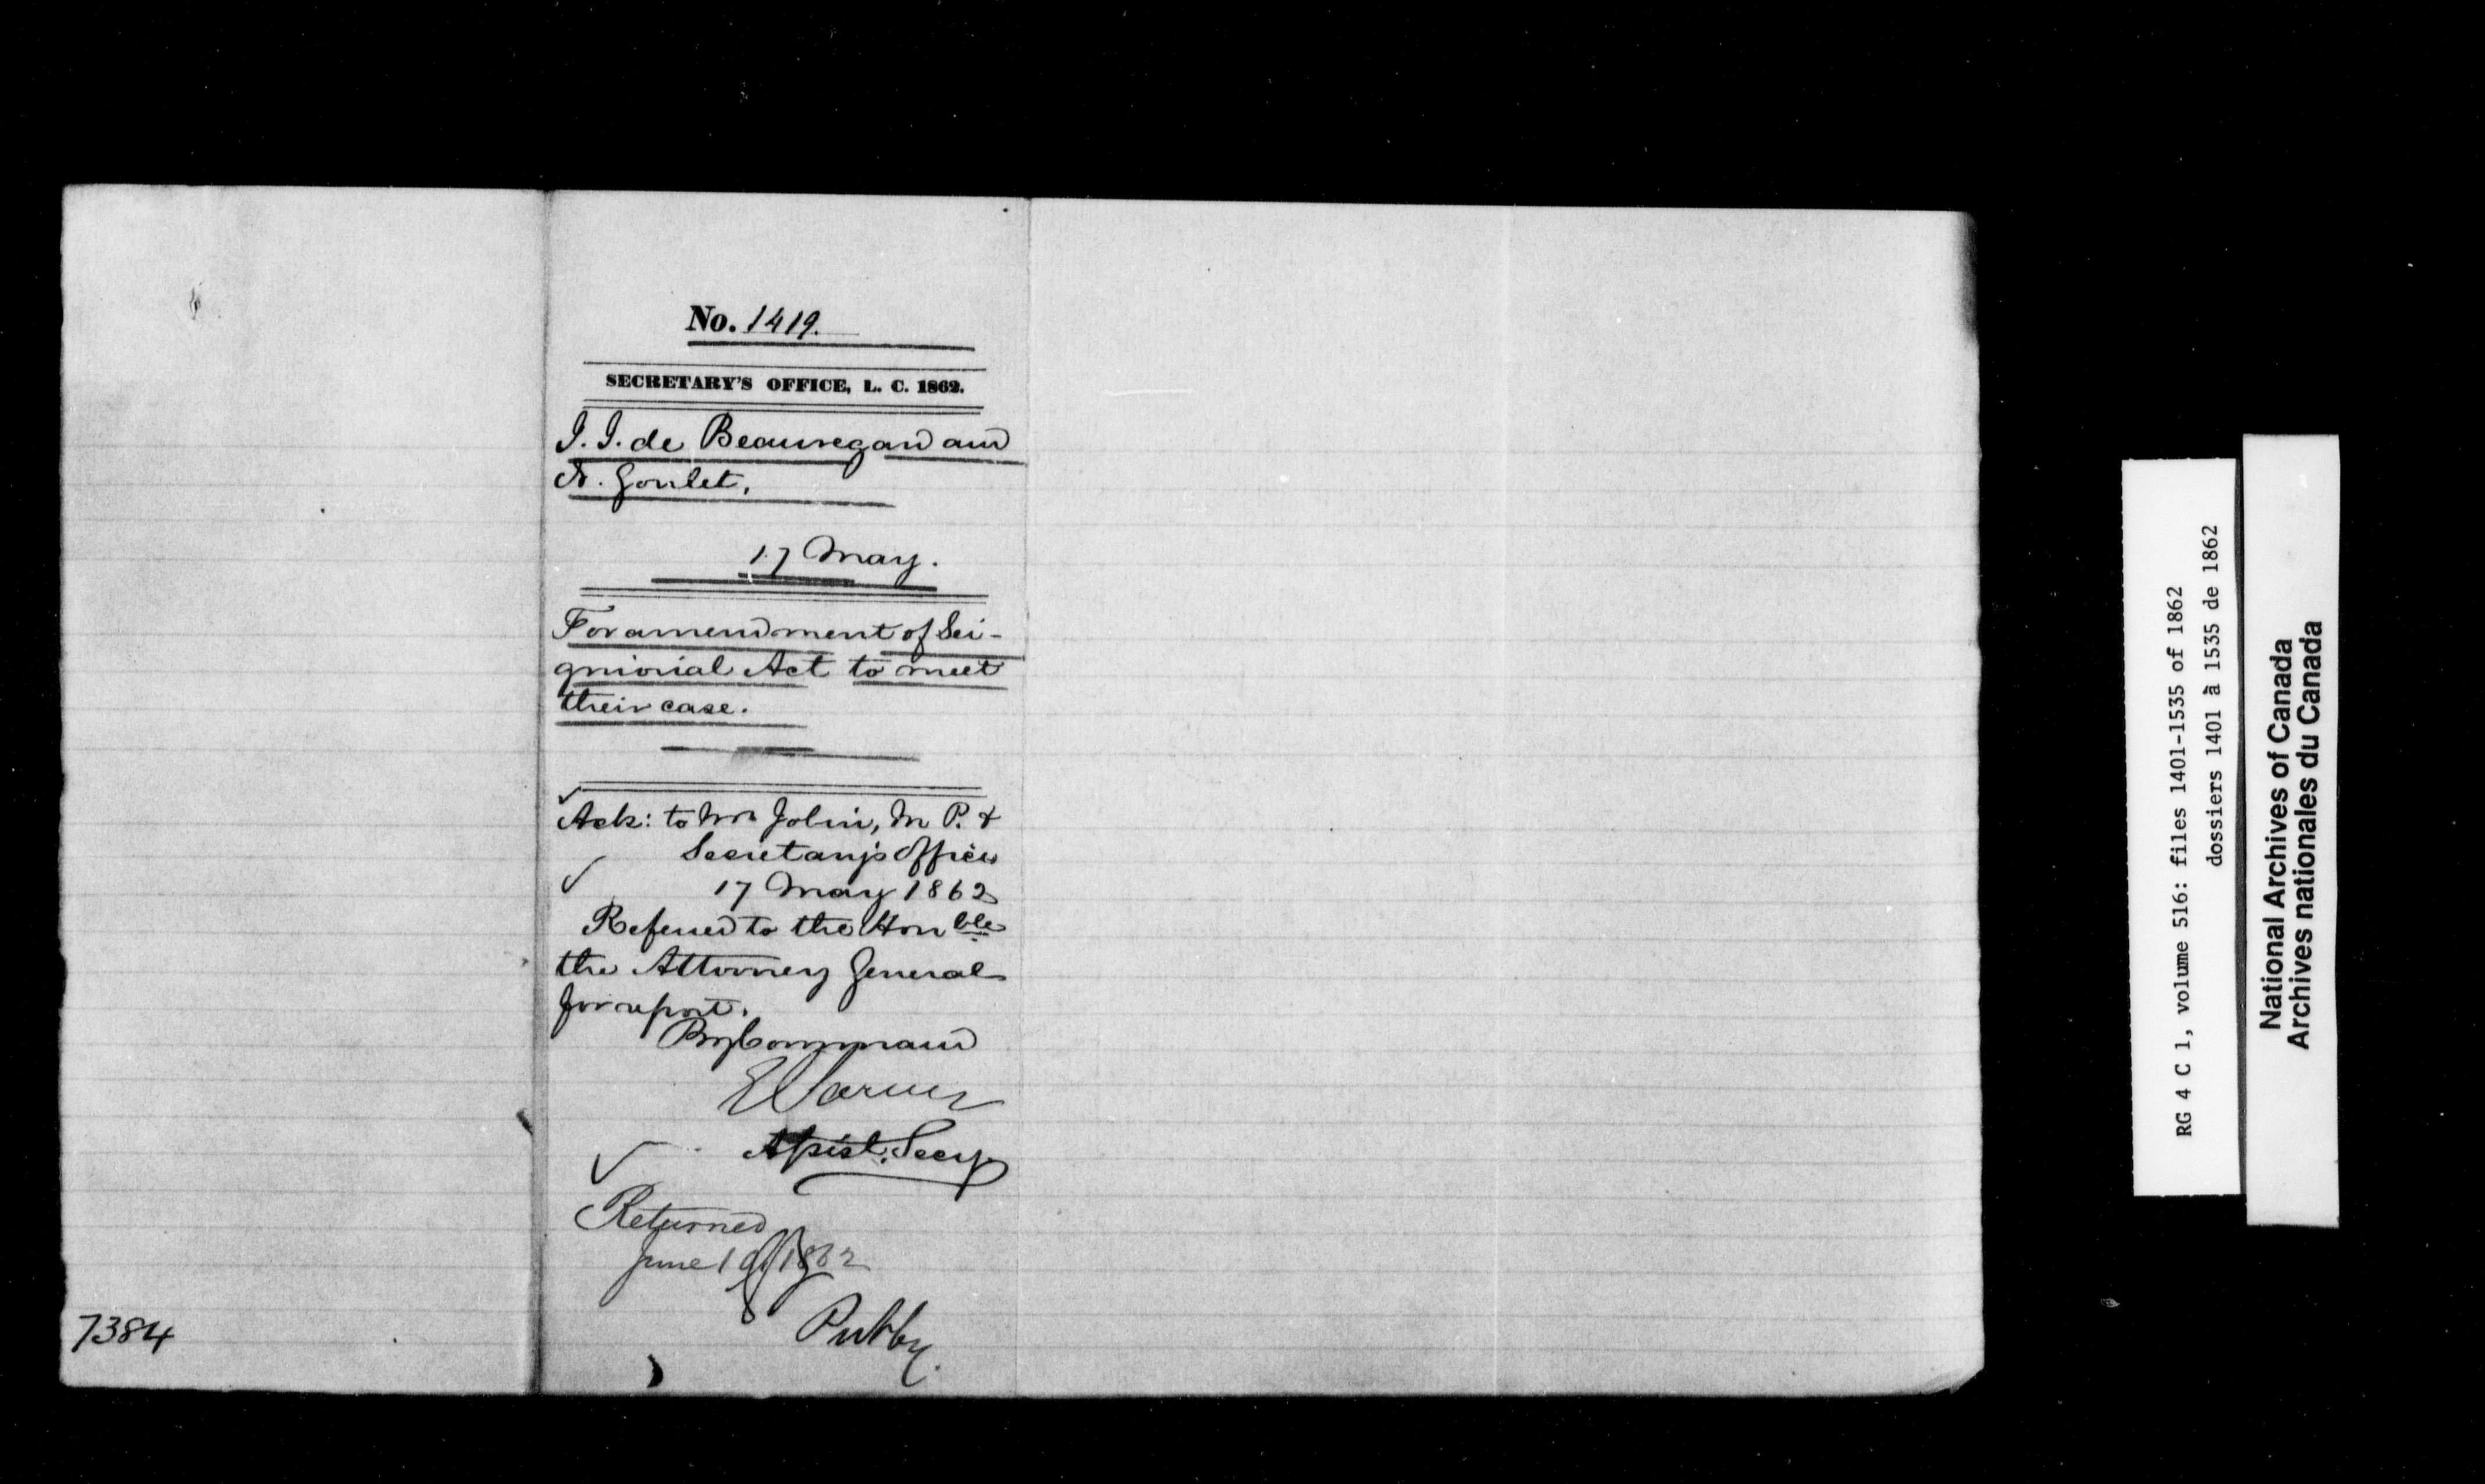 No. 1419.
SECRETARY'S OFFICE, L. C. 1862.
J. J. de Beauregard and
N. Goulet,
17 May.
For amendment of Sei-
gniorial Act to meet
their case.
Ack: to Mr Jobin, M P. &
Secretary's Office
17 May 1862
Referred to the Honble
the Attorney General
for report.
By Command
Assist. Secy
Returned
June 1862
7384
RG 4 C 1, volume 516: files 1401-1535 of 1862
dossiers 1401 à 1535 de 1862
National Archives of Canada
Archives nationales du Canada